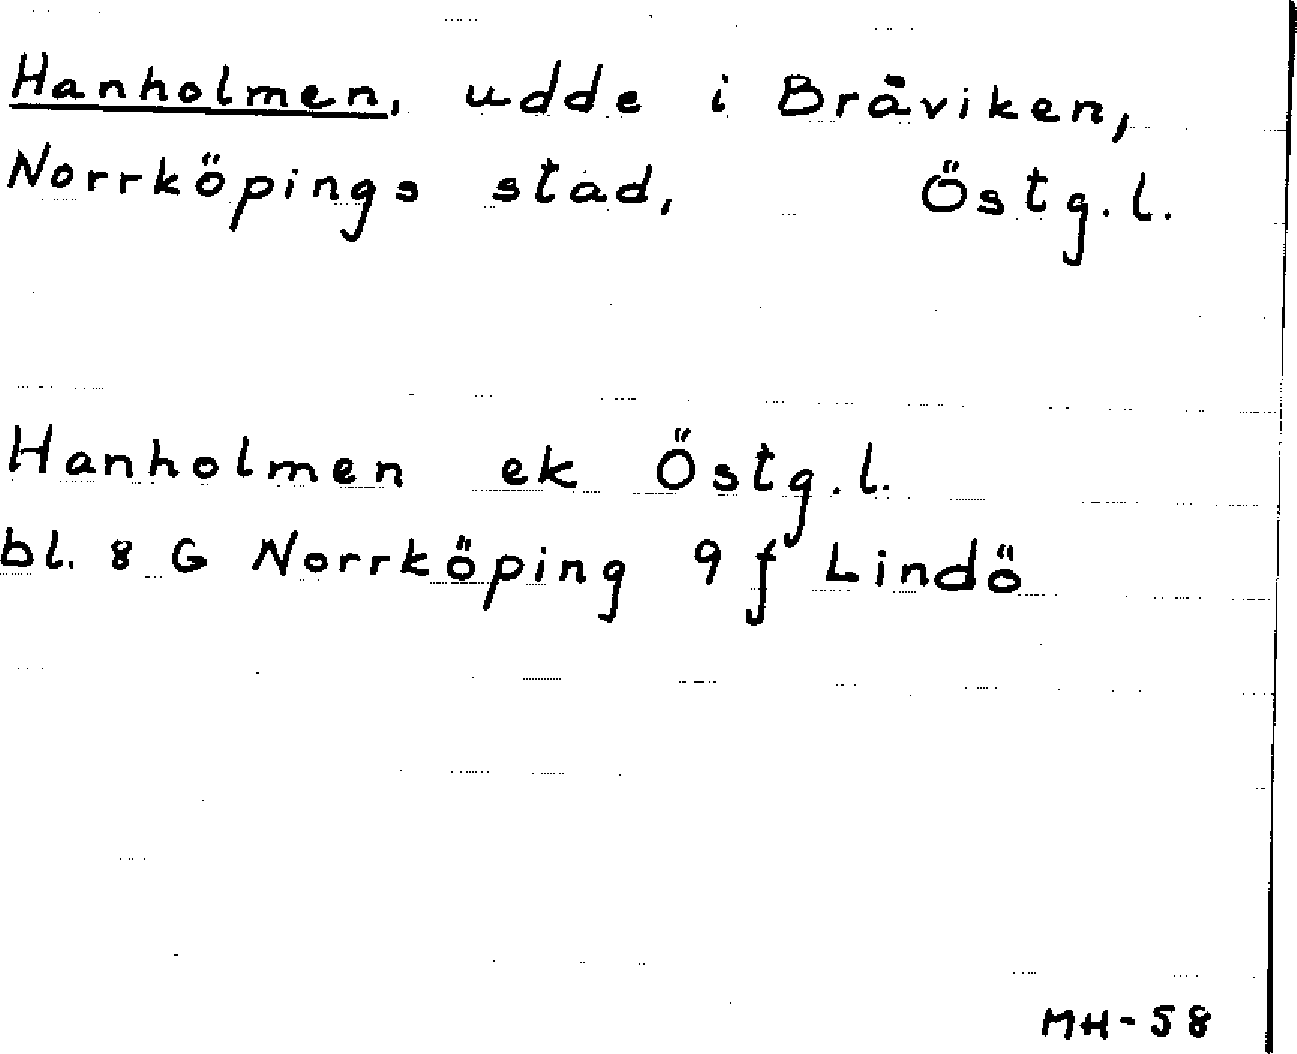 Hanholmen, udde i Bråviken,
Norrköpings stad, Östg.l.
Hanholmen ek Östg.l.
bl. 8 G Norrköping 9 f Lindö
MH-58